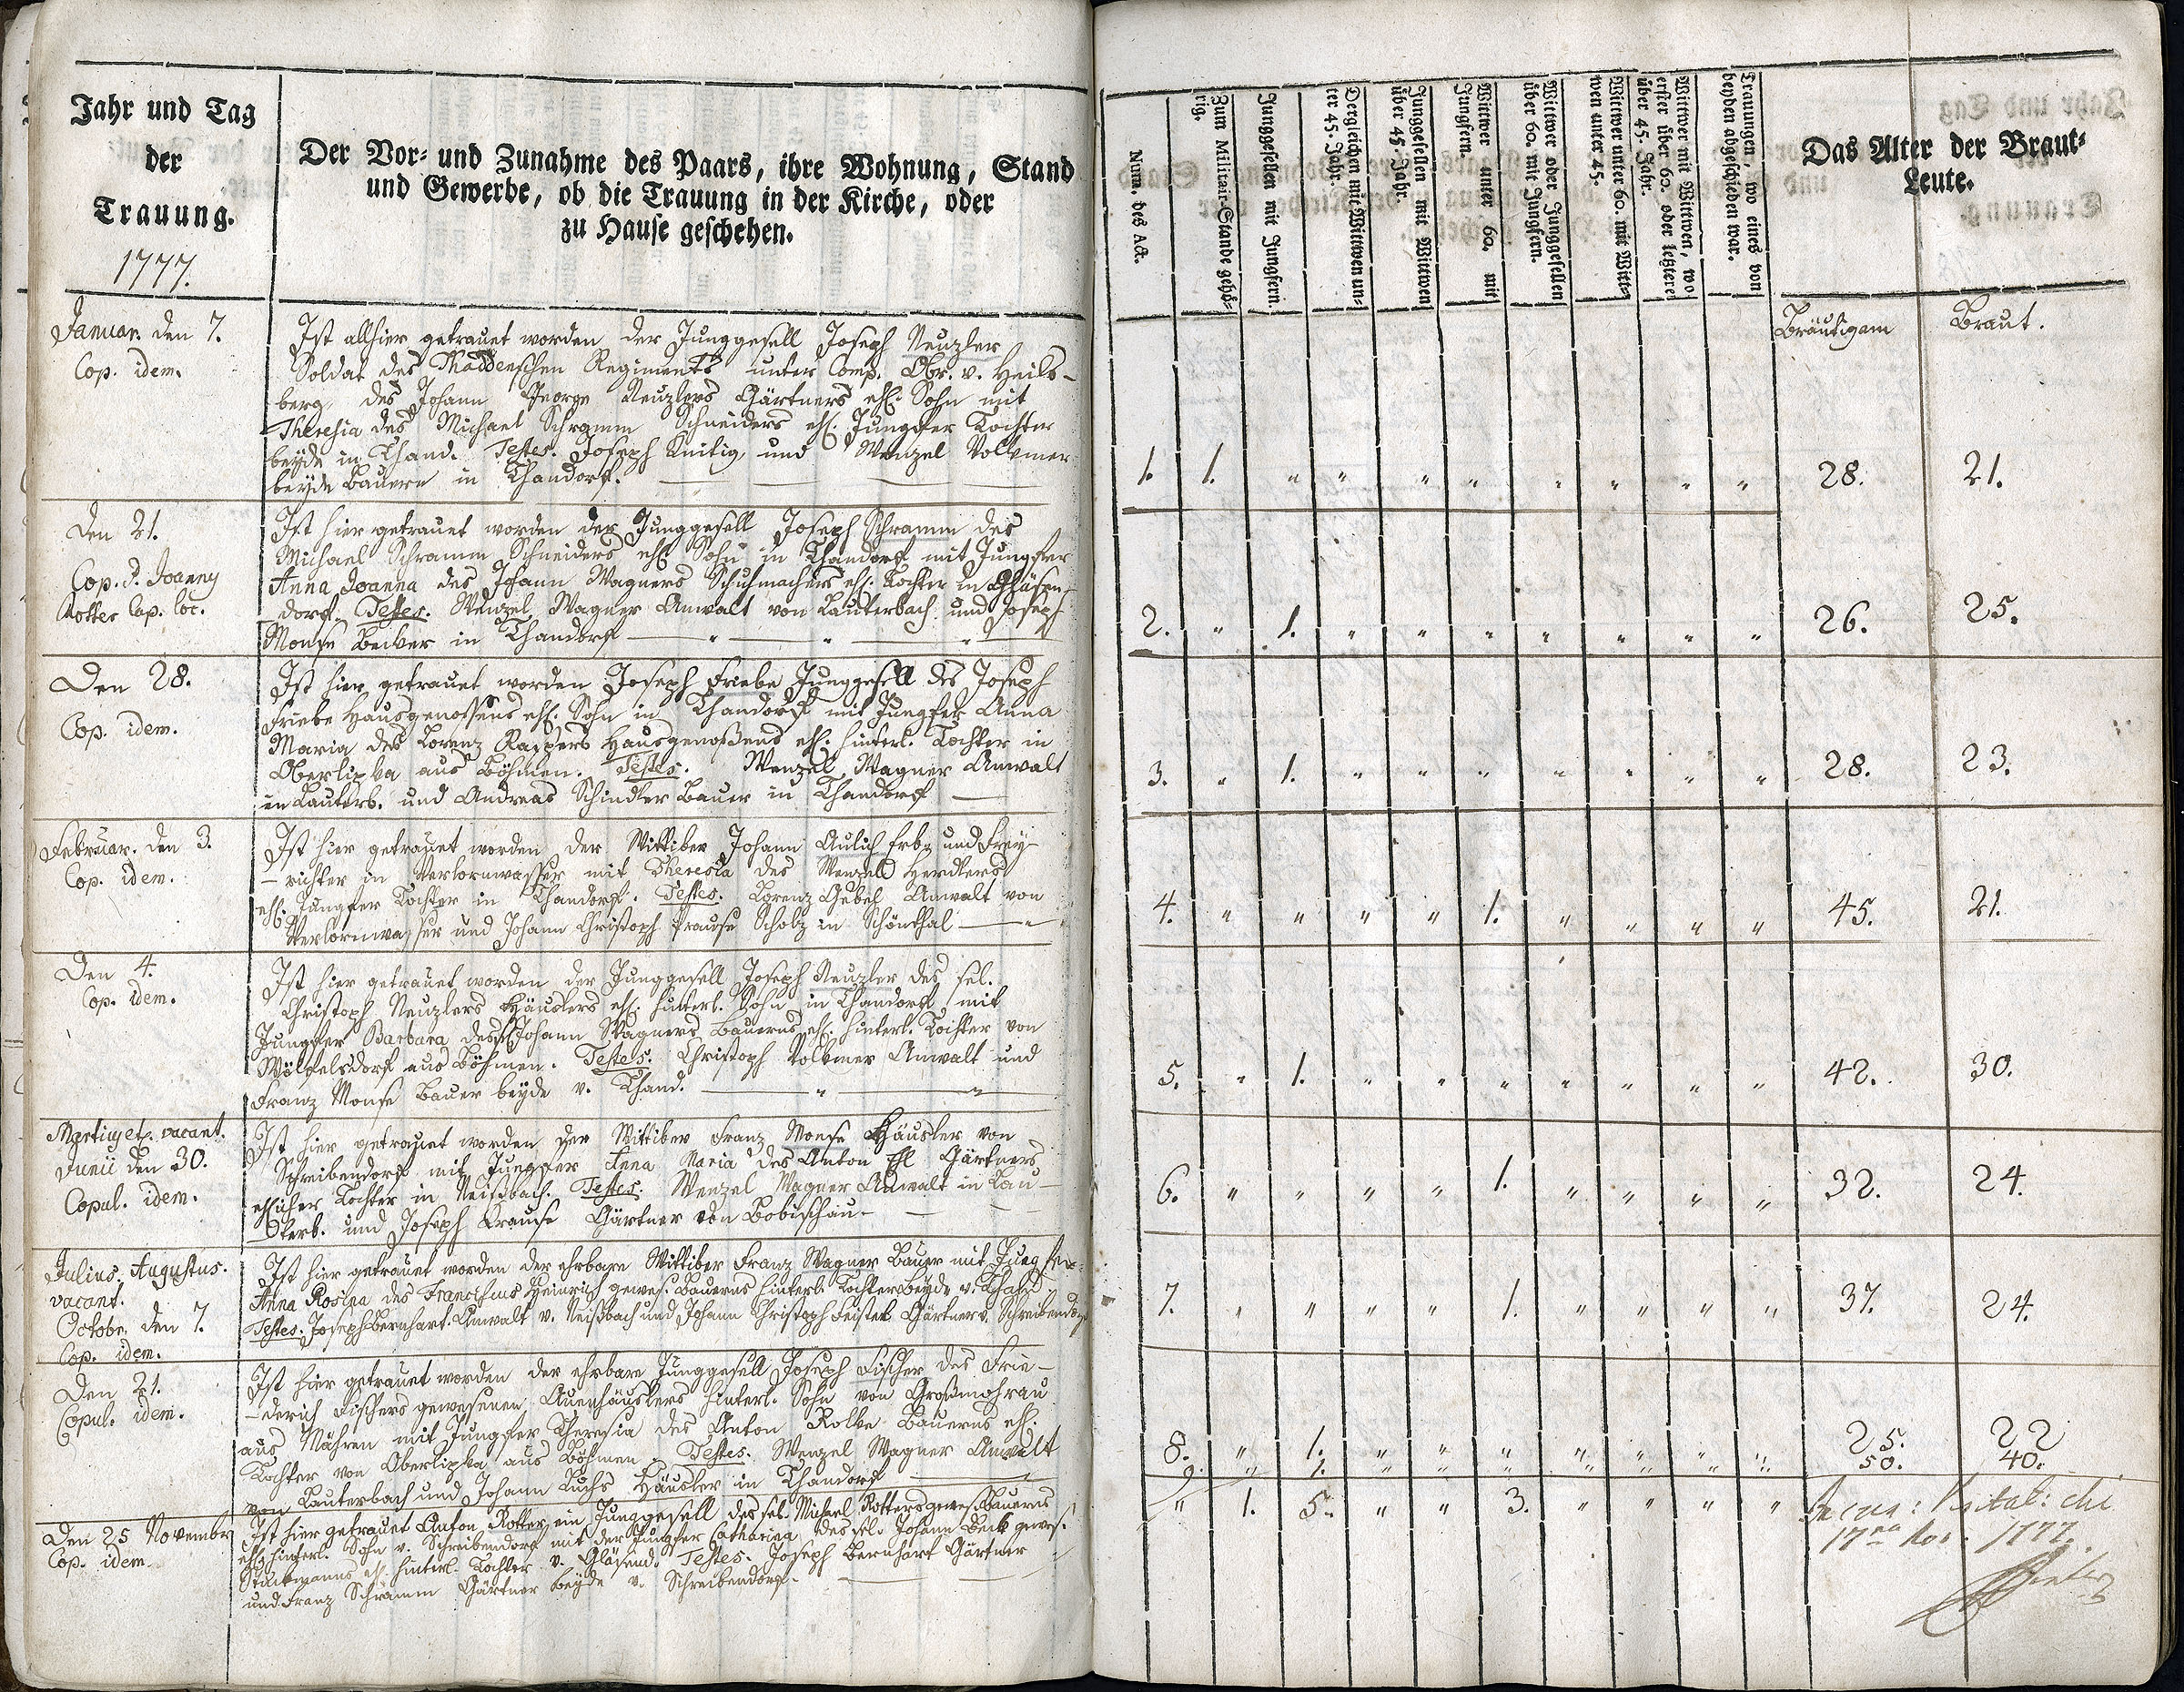 Jahr und Tag
der
Trauung.
1777.
Der Vor- und Zunahme des Paars, ihre Wohnung, Stand
und Gewerbe, ob die Trauung in der Kirche, oder
zu Hause geschehen.
Januar. den 7.
Cop. idem.
Ist allhier getrauet worden der Junggesell Joseph Neuzler
Soldat des Thaddenschen Regiments unter Comp. Obr. v. Heils-
berg, des Johann George Neuzlers Gärtners ehl. Sohn mit
Theresia des Michael Schramm Schneiders ehl. Jungfer Tochter
beyde in Thand. Testes. Joseph und Wenzel Volkmer
beyde Bauern in Thandorf.
Den 21.
Cop. P. Joanny
Rotter Cap. loc.
Ist hier getrauet worden der Junggesell Joseph Schramm des
Michael Schramm Schneiders ehl. Sohn in Thandorf mit Jungfer
Anna Joanna des Johann Wagners Schuhmachers ehl. Tochter in
dorf. Testes. Wenzel Wagner Anwalt von Lauterbach und Joseph
Monse Becker in Thandorf
Den 28.
Cop. idem.
Ist hier getrauet worden Joseph Friebe Junggesell des Joseph
Friebe Hausgenossens ehl. Sohn in Thandorf mit Jungfer Anna
Maria des Lorenz Raspers Hausgenoßens ehl. hinterl. Tochter in
Oberlipka aus Böhmen. Testes. Wenzel Wagner Anwalt
in Lauterb. und Andreas Schindler Bauer in Thandorf
Februar. den 3.
Cop. idem.
Ist hier getrauet worden der Wittiber Johann Aulich Erb- und Frey-
richter in Verlornwasser mit Theresia des Wenzel Herdlers
ehl. Jungfer Tochter in Thandorf. Testes. Lorenz Gebel Anwalt von
Verlornwasser und Johann Christoph Prause Scholz in Schönthal
Den 4.
Cop. idem.
Ist hier getrauet worden der Junggesell Joseph Neuzler des sel.
Christoph Neuzlers Häuslers ehl. hinterl. Sohn in Thandorf mit
Jungfer Barbara des Johann Wagners Bauerns ehl. hinterl. Tochter von
Wölfelsdorf aus Böhmen. Testes. Christoph Volkmer Anwalt und
Franz Monse Bauer beyde v. Thand.
vacant.
Junii den 30.
Copul. idem.
Ist hier getrauet worden der Wittiber Franz Monse Häusler von
Schreibendorf mit Jungfer Anna Maria des Anton Gärtners
ehlicher Tochter in Neißbach. Testes. Wenzel Wagner Anwalt in Lau-
terb. und Joseph Krause Gärtner von Bobischau
Julius. Augustus.
vacant.
Octobr. den 7.
Cop. idem.
Ist hier getrauet worden der ehrbare Wittiber Franz Wagner Bauer mit Jungfer
Anna Rosina des Franciscus Heinrich gewes. Bauerns hinterl. Tochter beyde v. Thand.
Testes. Joseph Bernhart Anwalt v. Neißbach und Johann Christoph Feistel Gärtner v. Schreibend.
Den 21.
Copul. idem.
Ist hier getrauet worden der ehrbare Junggesell Joseph Fischer des Frie-
derich Fischers gewesenen Auenhäuslers hinterl. Sohn von Großmohrau
aus Mähren mit Jungfer Theresia des Anton Rolke Bauerns ehl.
Tochter von Oberlipka aus Böhmen. Testes. Wenzel Wagner Anwalt
von Lauterbach und Johann Fuchs Häusler in Thandorf
Den 25 November
Cop. idem.
Ist hier getrauet Anton Rotter ein Junggesell des sel. Michael Rotters gewes. Bauerns
ehl. hinterl. Sohn v. Schreibendorf mit der Jungfer Catharina des sel. Johann Beck gewes.
Stückmanns ehl. hinterl. Tochter v. Gläsend. Testes. Joseph Bernhart Gärtner
und Franz Schramm Gärtner beyde v. Schreibendorf.
Num. des Act.
Zum Militair-Stande gehö-
rig.
Junggesellen mit Jungfern.
Dergleichen mit Wittwen un-
ter 45. Jahr.
Junggesellen mit Wittwen
über 45 Jahr.
Wittwer unter 60. mit
Jungfern.
Wittwer oder Junggesellen
über 60. mit Jungfern.
Wittwer unter 60. mit Witt-
wen unter 45.
Wittwer mit Wittwen, wo
erster über 60. oder letztere
über 45. Jahr.
Trauungen, wo eines von
beyden abgeschieden war.
Das Alter der Braut-
Leute.
Bräutigam Braut.
1. 1. " " " " " " " " 28. 21.
2. " 1. " " " " " " " 26. 25.
3. " 1. " " " " " " " 28. 23.
4. " " " " 1. " " " " 45. 21.
5. " 1. " " " " " " " 42. 30.
6. " " " " 1. " " " " 32. 24.
7. " " " " 1. " " " " 37. 24.
8. " 1. " " " " " " " 25. 22
9. " 1. " " " " " " " 50. 40.
" 1. 5. " " 3. " " " "
1777.